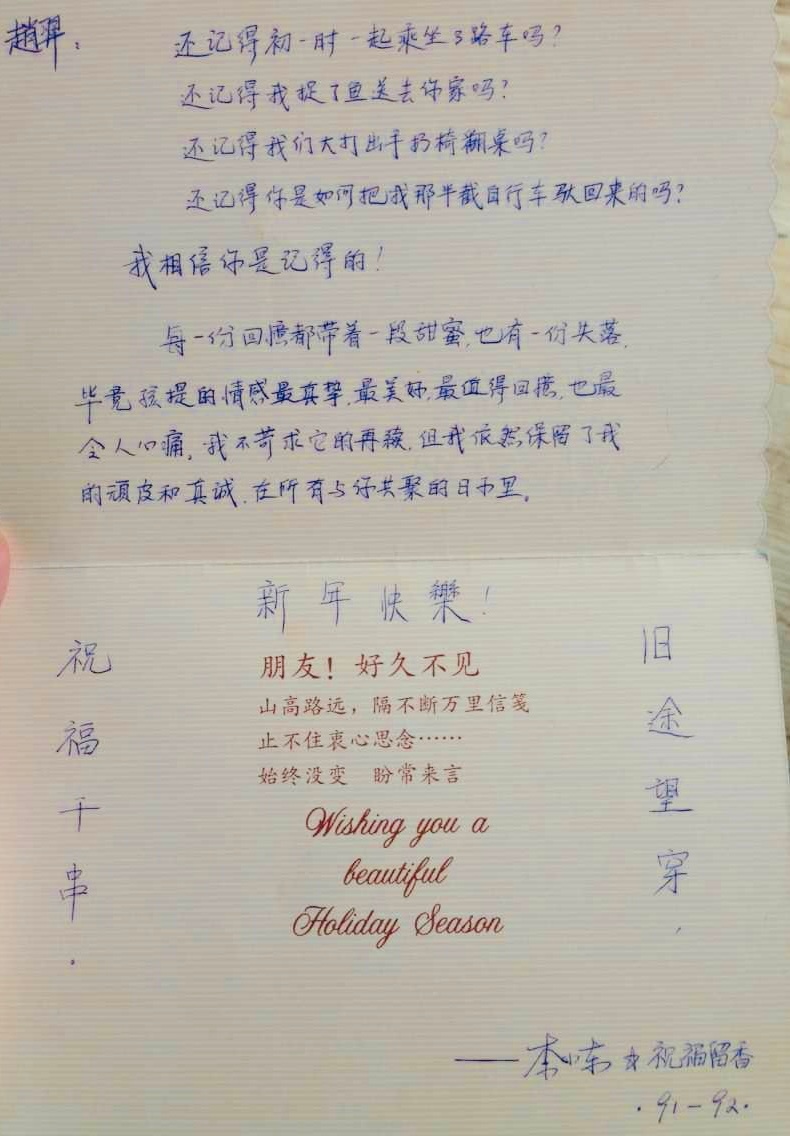 赵羿： 还记得初一时一起乘坐3路车吗？
还记得我捉了鱼送去你家吗？
还记得我们大打出手扔椅翻桌吗？
还记得你是如何把我那半截自行车驮回来的吗？
我相信你是记得的！
每一份回忆都带着一段甜蜜,也有一份失落,
毕竟孩提的情感最真挚,最美好,最值得回忆,也最
令人心痛,我不苛求它的再续,但我依然保留了我
的顽皮和真诚,在所有与你共聚的日子里。
新年快樂！
旧途望穿,
祝福千串。
朋友！好久不见
山高路远，隔不断万里信笺
止不住衷心思念……
始终没变 盼常来言
Wishing you a
beautiful
Holiday Season
——李小东 祝福留香
·91-92·